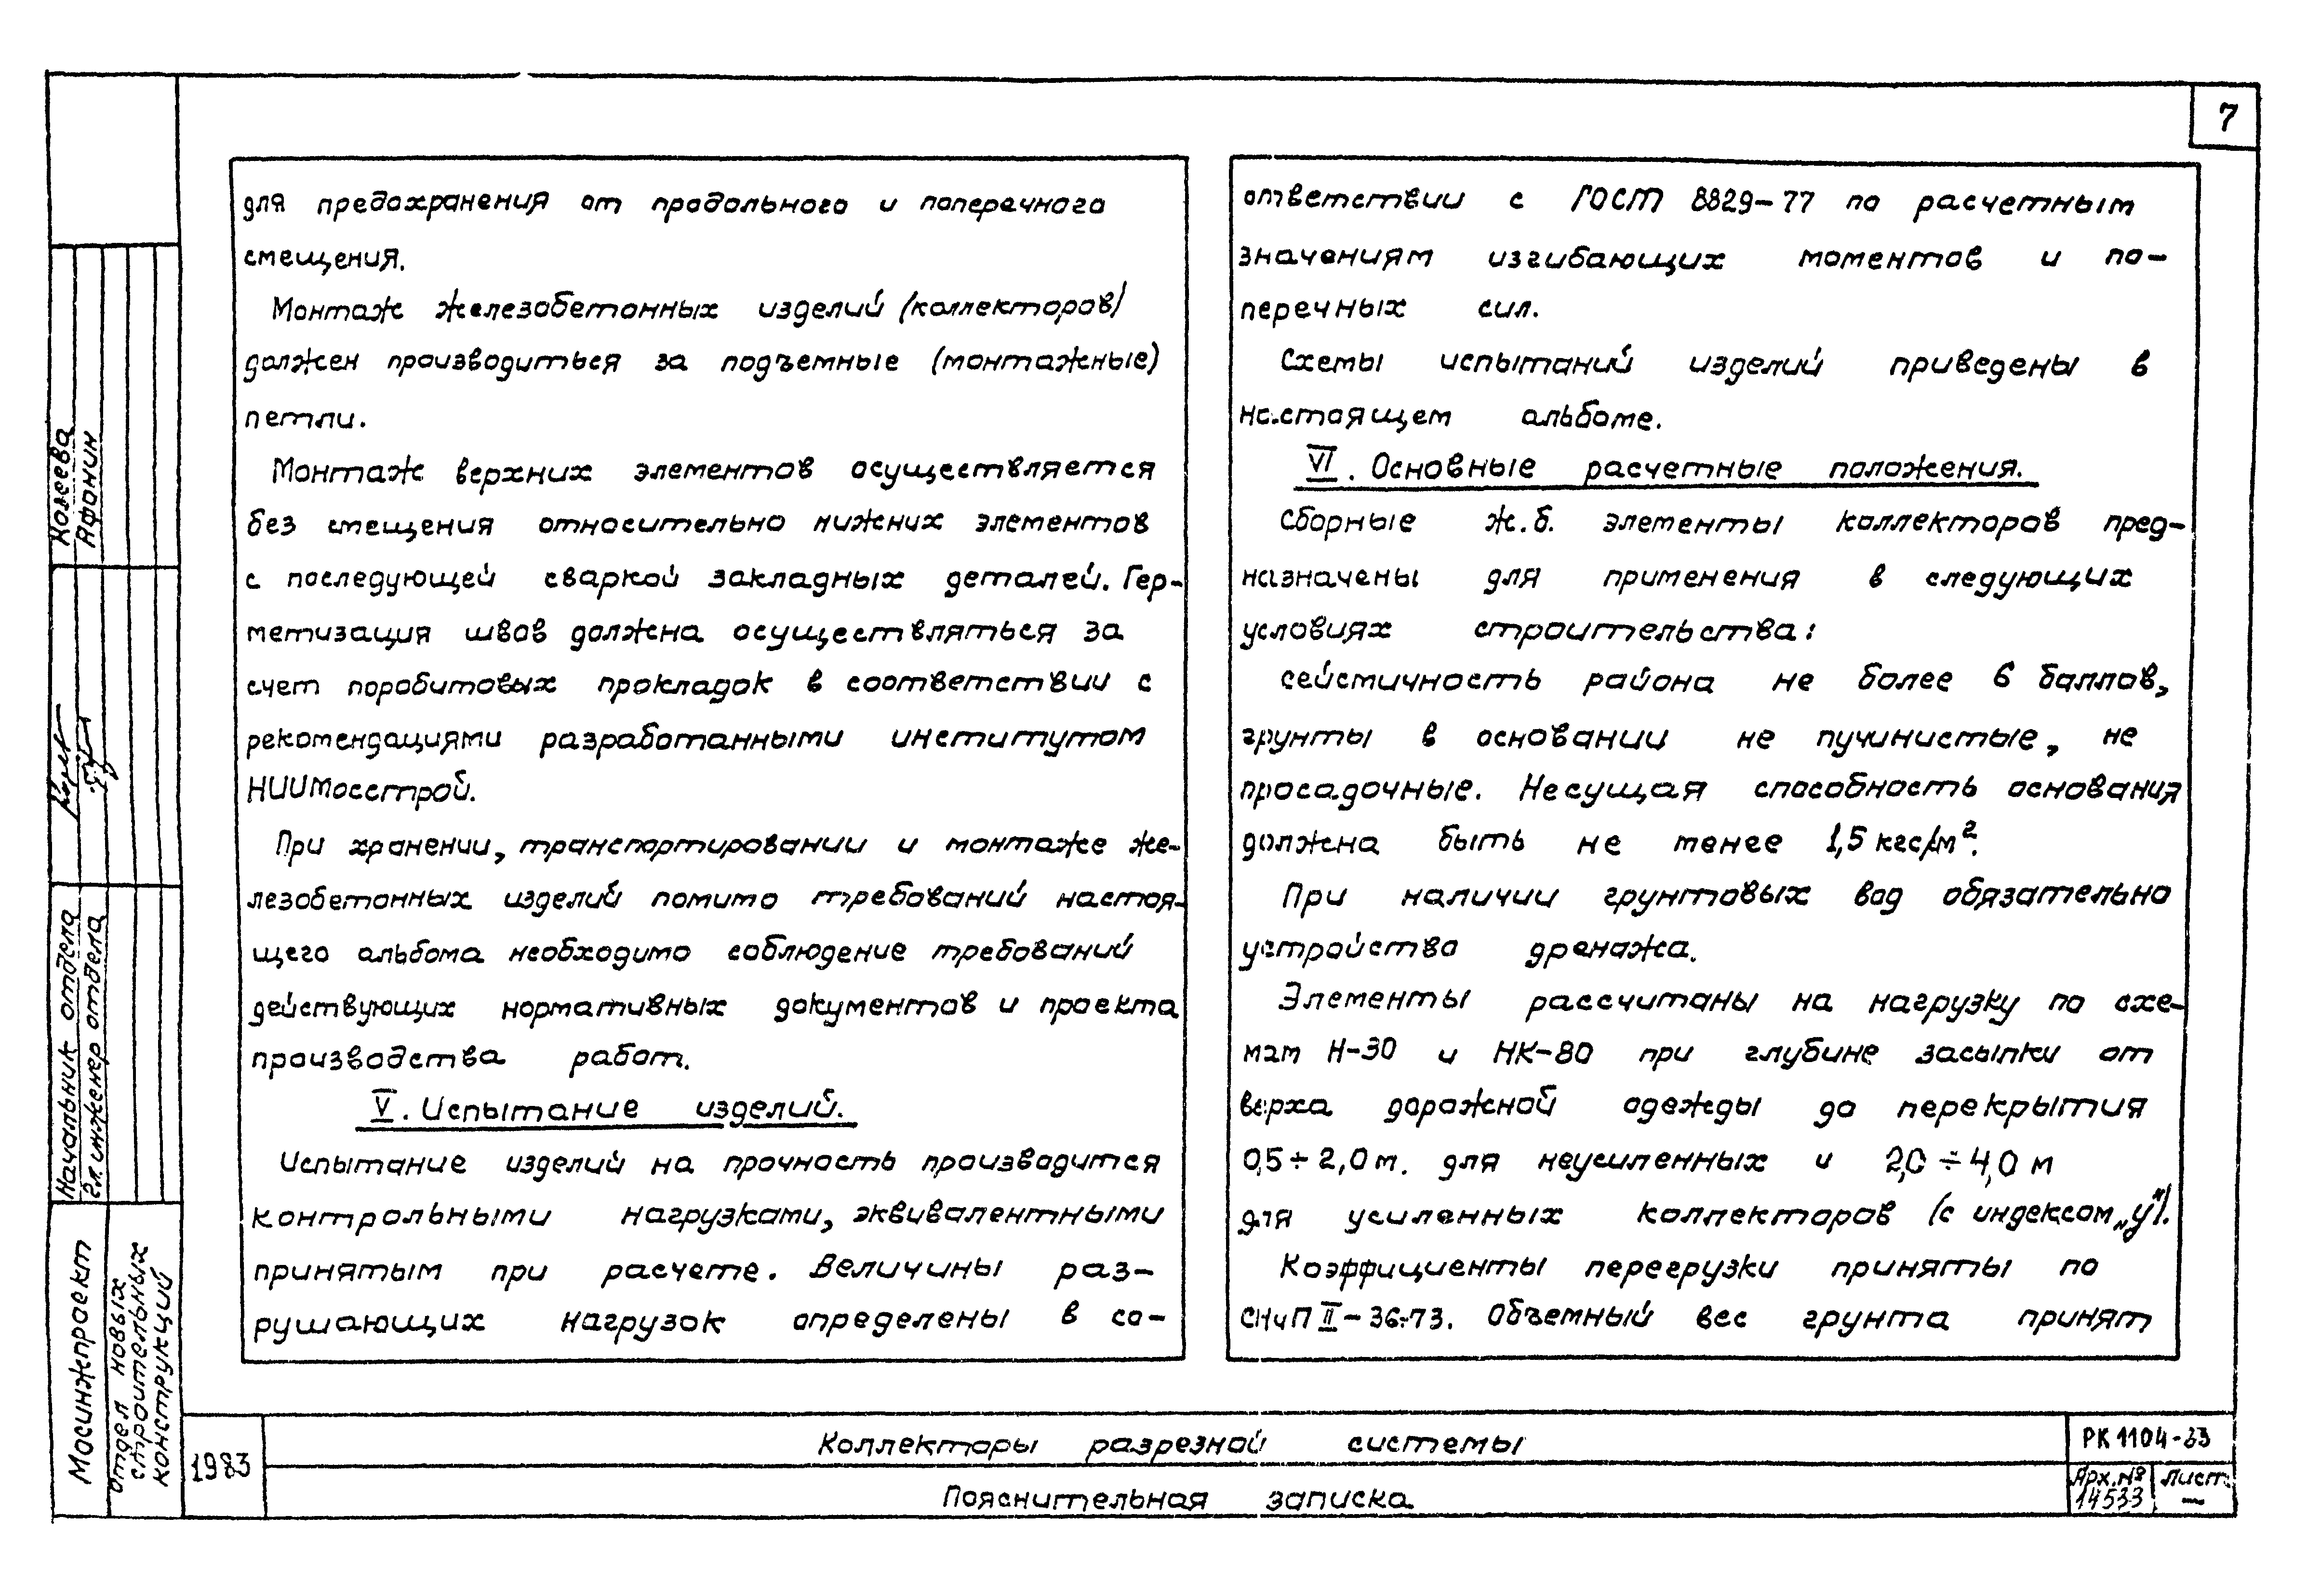 7
для предохранения от продольного и поперечного
смещения.
Монтаж железобетонных изделий (коллекторов)
должен производиться за подъемные (монтажные)
петли.
Монтаж верхних элементов осуществляется
без смещения относительно нижних элементов
с последующей сваркой закладных деталей. Гер-
метизация швов должна осуществляться за
счет поробитовых прокладок в соответствии с
рекомендациями разработанными институтом
НИИМосстрой.
При хранении, транспортировании и монтаже же-
лезобетонных изделий помимо требований настоя-
щего альбома необходимо соблюдение требований
действующих нормативных документов и проекта
производства работ.
V. Испытание изделий.
Испытание изделий на прочность производится
контрольными нагрузками, эквивалентными
принятым при расчете. Величины раз-
рушающих нагрузок определены в со-
ответствии с ГОСТ 8829-77 по расчетным
значениям изгибающих моментов и по-
перечных сил.
Схемы испытаний изделий приведены в
настоящем альбоме.
VI. Основные расчетные положения.
Сборные ж.б. элементы коллекторов пред-
назначены для применения в следующих
условиях строительства:
сейсмичность района не более 6 баллов,
грунты в основании не пучинистые, не
просадочные. Несущая способность основания
должна быть не менее 1,5 кгс/м².
При наличии грунтовых вод обязательно
устройство дренажа.
Элементы рассчитаны на нагрузку по схе-
мам Н-30 и НК-80 при глубине засыпки от
верха дорожной одежды до перекрытия
0,5÷2,0м. для неусиленных и 2,0÷4,0 м
для усиленных коллекторов (с индексом „у").
Коэффициенты перегрузки приняты по
СНиП II-36-73. Объемный вес грунта принят
Начальник отдела
Гл. инженер отдела Афонин
Мосинжпроект
отдел новых
строительных
конструкций
1983
Коллекторы разрезной системы
Пояснительная записка
РК 1104-83
Арх.№ 14533
Лист
—